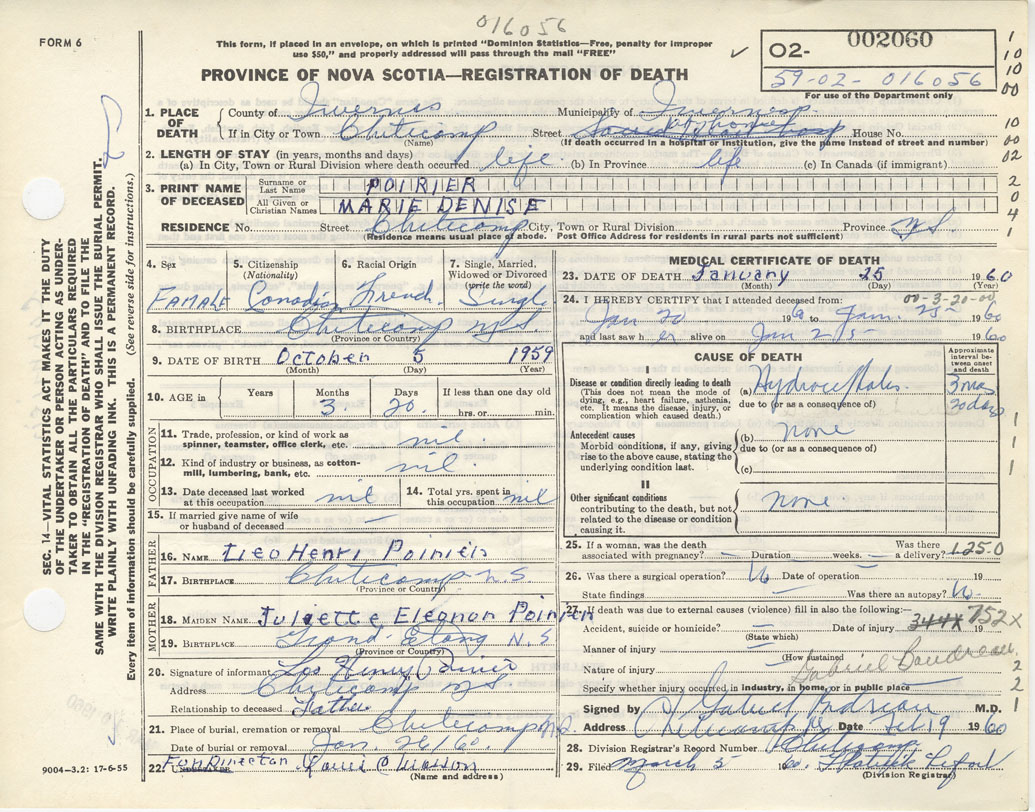 016056
FORM 6
This form, if placed in an envelope, on which is printed "Dominion Statistics—Free, penalty for improper
use $50," and properly addressed will pass through the mail "FREE"
PROVINCE OF NOVA SCOTIA—REGISTRATION OF DEATH
O2- 002060
59-02-016056
For use of the Department only
SEC. 14—VITAL STATISTICS ACT MAKES IT THE DUTY
OF THE UNDERTAKER OR PERSON ACTING AS UNDER-
TAKER TO OBTAIN ALL THE PARTICULARS REQUIRED
IN THE "REGISTRATION OF DEATH" AND TO FILE THE
SAME WITH THE DIVISION REGISTRAR WHO SHALL ISSUE THE BURIAL PERMIT.
WRITE PLAINLY WITH UNFADING INK. THIS IS A PERMANENT RECORD.
Every item of information should be carefully supplied. (See reverse side for instructions.)
1. PLACE OF DEATH
County of Inverness Municipality of Inverness
If in City or Town Cheticamp Street House No.
(Name) (If death occurred in a hospital or institution, give the name instead of street and number)
2. LENGTH OF STAY (in years, months and days)
(a) In City, Town or Rural Division where death occurred life (b) In Province life (c) In Canada (if immigrant)
3. PRINT NAME OF DECEASED
Surname or Last Name POIRIER
All Given or Christian Names MARIE DENISE
RESIDENCE No. Street Cheticamp City, Town or Rural Division Province N.S.
(Residence means usual place of abode. Post Office Address for residents in rural parts not sufficient)
4. Sex 5. Citizenship (Nationality) 6. Racial Origin 7. Single, Married, Widowed or Divorced (write the word)
Female Canadian French Single
8. BIRTHPLACE Cheticamp N.S.
(Province or Country)
9. DATE OF BIRTH October 5 1959
(Month) (Day) (Year)
10. AGE in Years Months Days If less than one day old
3. 20. hrs. or min.
OCCUPATION
11. Trade, profession, or kind of work as
spinner, teamster, office clerk, etc. nil.
12. Kind of industry or business, as cotton-
mill, lumbering, bank, etc. nil.
13. Date deceased last worked at this occupation nil 14. Total yrs. spent in this occupation nil
15. If married give name of wife
or husband of deceased —
FATHER
16. NAME Leo Henri Poirier
17. BIRTHPLACE Cheticamp N.S
(Province or Country)
MOTHER
18. MAIDEN NAME Juliette Eleonor Poirier
19. BIRTHPLACE Grand Etang N.S
(Province or Country)
20. Signature of informant Leo Henry Poirier
Address Cheticamp N.S
Relationship to deceased Father
21. Place of burial, cremation or removal Cheticamp N.S.
Date of burial or removal Jan. 26/60.
22. Fun Director
(Name and address)
9004—3.2: 17-6-55
MEDICAL CERTIFICATE OF DEATH
23. DATE OF DEATH January 25 1960
(Month) (Day) (Year)
24. I HEREBY CERTIFY that I attended deceased from: 00-3-20-00
Jan 20 19 to Jan. 25 1960
and last saw her alive on Jan 25 1960
CAUSE OF DEATH
Approximate interval between onset and death
I
Disease or condition directly leading to death
(This does not mean the mode of
dying, e.g., heart failure, asthenia,
etc. It means the disease, injury, or
complication which caused death.)
(a) 3 mos 20 days
due to (or as a consequence of)
Antecedent causes
Morbid conditions, if any, giving
rise to the above cause, stating the
underlying condition last.
(b) none
due to (or as a consequence of)
(c)
II
Other significant conditions
contributing to the death, but not
related to the disease or condition
causing it.
none
25. If a woman, was the death
associated with pregnancy? — Duration weeks. — Was there a delivery? 1250
26. Was there a surgical operation? No Date of operation 19
State findings Was there an autopsy? No
27. If death was due to external causes (violence) fill in also the following:—
Accident, suicide or homicide? — Date of injury 344X 19 752X
(State which)
Manner of injury —
(How sustained
Nature of injury — Gabriel Boudreau
Specify whether injury occurred, in industry, in home, or in public place
Signed by M.D.
Address Cheticamp Date Feb 19 1960
28. Division Registrar's Record Number
29. Filed March 5 1960.
(Division Registrar)